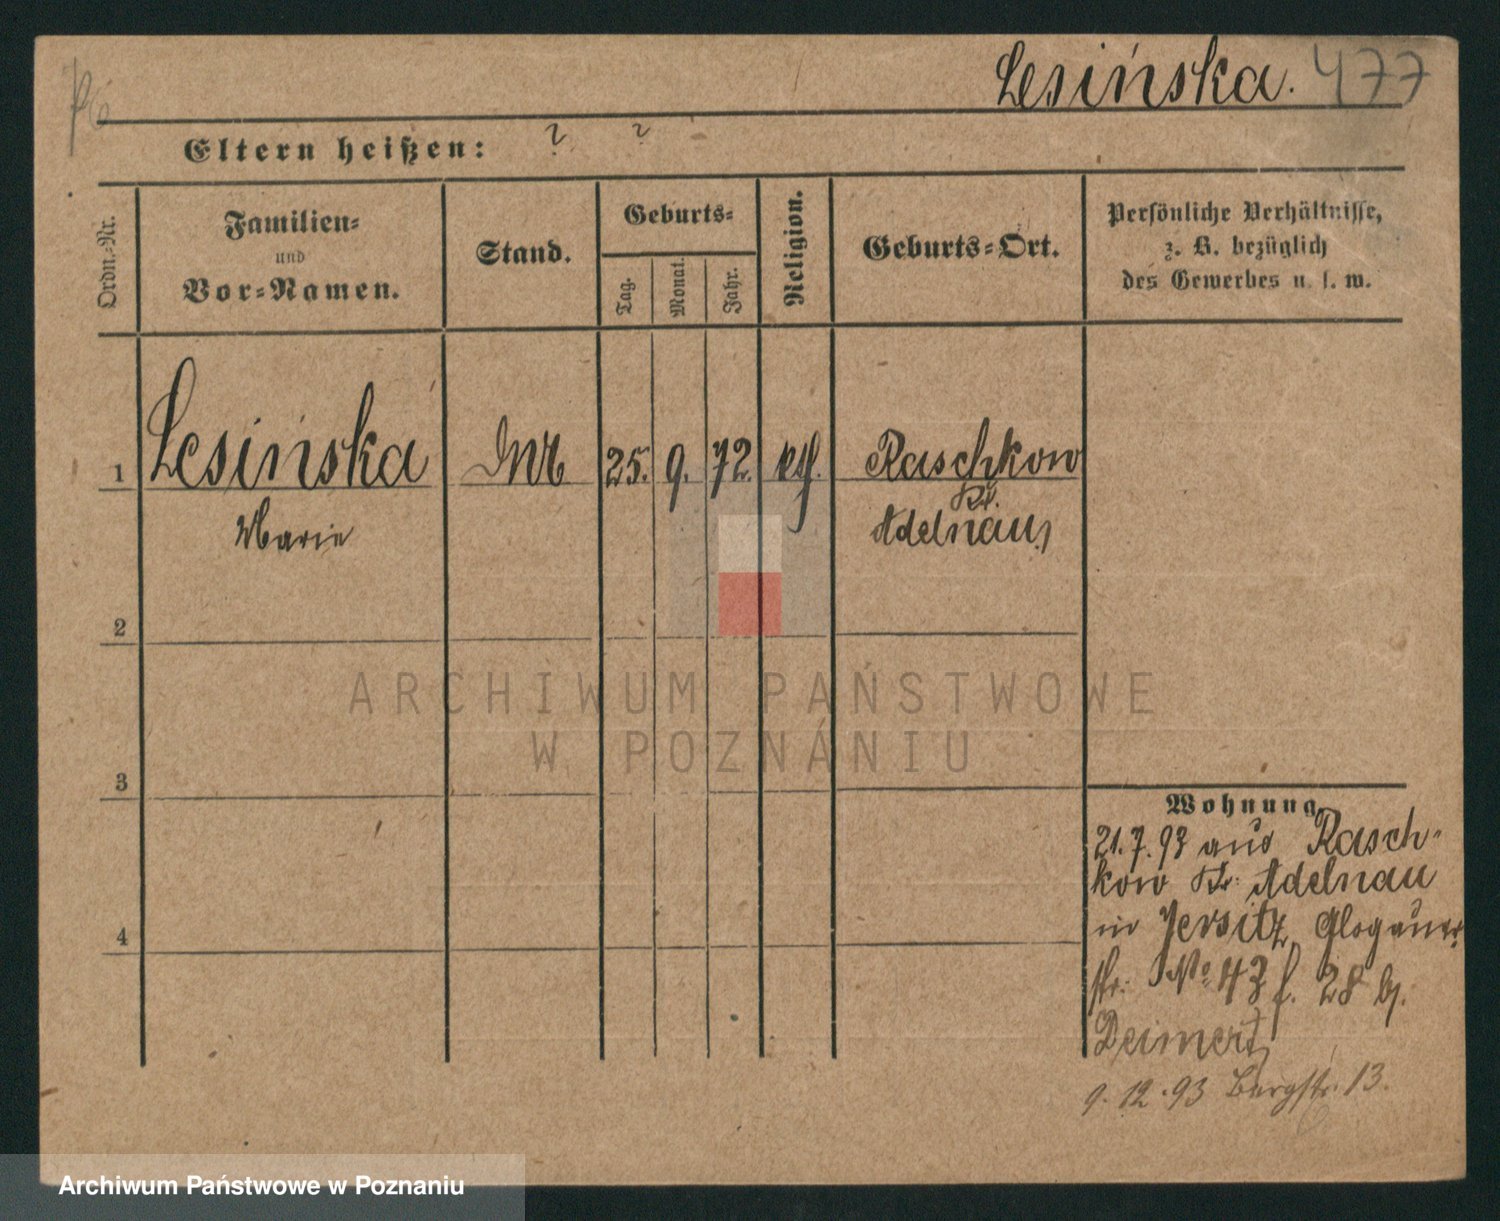 Lesińska. 477
Eltern heißen: ? ?
Ordn.-Nr.
Familien-
und
Vor-Namen.
Stand.
Geburts-
Tag.
Monat.
Jahr.
Religion.
Geburts-Ort.
Persönliche Verhältnisse,
z. B. bezüglich
des Gewerbes u. s. w.
1 Lesińska 25. 9. 72. ktl. Raschkow
Kr.
Marie Adelnau
2
3
4
Wohnung
21.7.93 aus Rasch-
kow Kr. Adelnau
in Jersitz, Glogauer
str. No 43 f. 28 b.
Deimert
9.12.93 Bergstr. 13.
ARCHIWUM PAŃSTWOWE
W POZNANIU
Archiwum Państwowe w Poznaniu